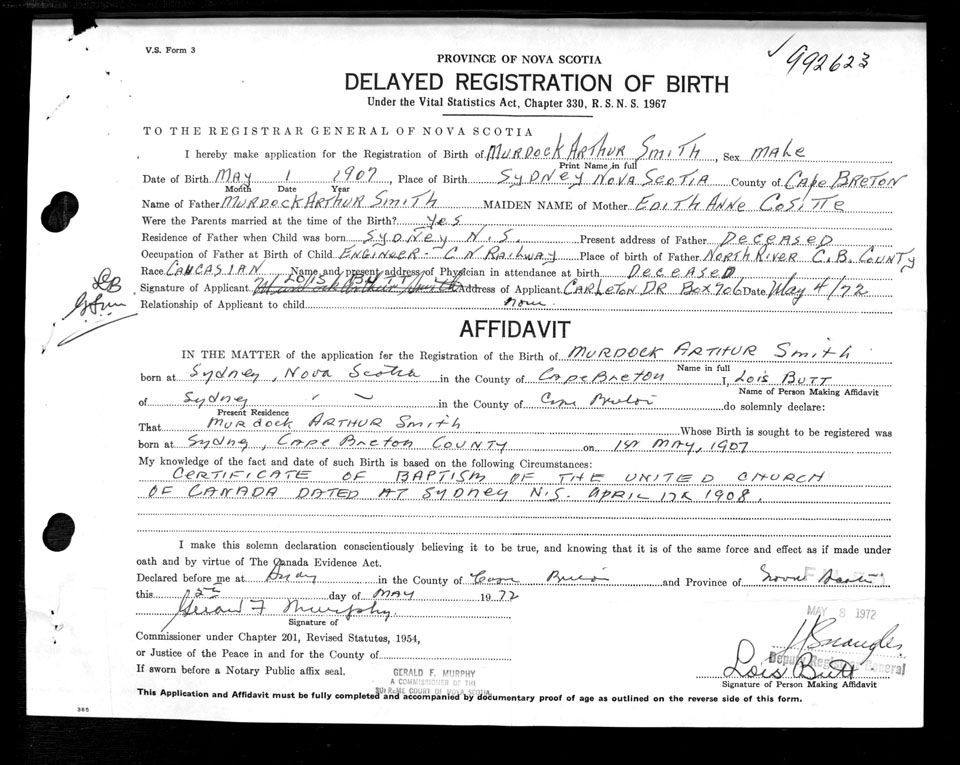 V.S. Form 3
992623
PROVINCE OF NOVA SCOTIA
DELAYED REGISTRATION OF BIRTH
Under the Vital Statistics Act, Chapter 330, R.S.N.S. 1967
TO THE REGISTRAR GENERAL OF NOVA SCOTIA
I hereby make application for the Registration of Birth of MURDOCK ARTHUR SMITH, Sex MALE
Print Name in full
Date of Birth MAY 1 1907, Place of Birth SYDNEY NOVA SCOTIA County of CAPE BRETON
Month Date Year
Name of Father MURDOCK ARTHUR SMITH MAIDEN NAME of Mother EDITH ANNE
Were the Parents married at the time of the Birth? Yes
Residence of Father when Child was born SYDNEY N.S. Present address of Father DECEASED
Occupation of Father at Birth of Child ENGINEER - C N RAILWAY Place of birth of Father NORTH RIVER C.B. COUNTY
Race CAUCASIAN Name and present address of Physician in attendance at birth DECEASED
LOIS BUTT
Signature of Applicant Murdock Arthur Smith Address of Applicant CARLETON DR BOX 906 Date May 4/72
LB
Relationship of Applicant to child none
AFFIDAVIT
IN THE MATTER of the application for the Registration of the Birth of MURDOCK ARTHUR Smith
Name in full
born at Sydney, Nova Scotia in the County of Cape Breton I, LOIS BUTT
Name of Person Making Affidavit
of Sydney in the County of Cape Breton do solemnly declare:
Present Residence
That MURDOCK ARTHUR Smith Whose Birth is sought to be registered was
born at Sydney, Cape Breton COUNTY on 1st MAY, 1907
My knowledge of the fact and date of such Birth is based on the following Circumstances:
CERTIFICATE OF BAPTISM OF THE UNITED CHURCH
OF CANADA DATED AT SYDNEY N.S. APRIL 1908.
I make this solemn declaration conscientiously believing it to be true, and knowing that it is of the same force and effect as if made under
oath and by virtue of The Canada Evidence Act.
Declared before me at Sydney in the County of Cape Breton and Province of Nova Scotia
this day of MAY 1972
MAY 8 1972
Gerald F Murphy
Signature of
Commissioner under Chapter 201, Revised Statutes, 1954,
or Justice of the Peace in and for the County of
Deputy Registrar General
If sworn before a Notary Public affix seal.
GERALD F. MURPHY
A COMMISSIONER OF THE
SUPREME COURT OF NOVA SCOTIA
Lois Butt
Signature of Person Making Affidavit
This Application and Affidavit must be fully completed and accompanied by documentary proof of age as outlined on the reverse side of this form.
385